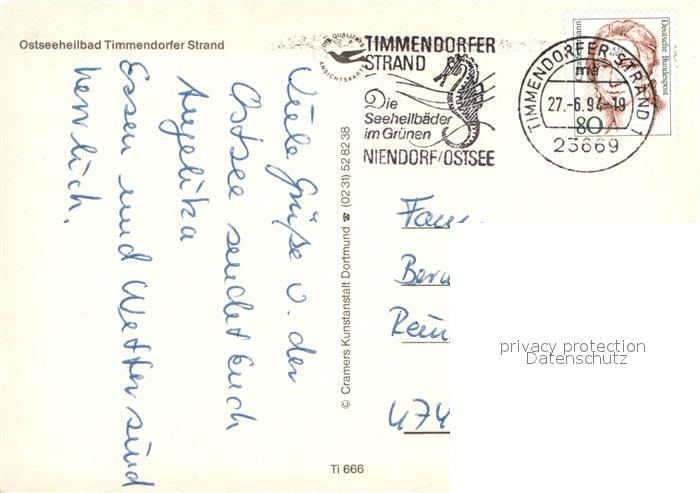 Ostseeheilbad Timmendorfer Strand
DIE QUALITÄTS
ANSICHTSKARTE
TIMMENDORFER
STRAND
Die
Seeheilbäder
im Grünen
NIENDORF/OSTSEE
TIMMENDORFER STRAND 1
ma
27.-6.94-19
23669
Deutsche Bundespost
80
Viele Grüße v. der
Ostsee sendet Euch
Angelika
Essen und Wetter sind
herrlich.
© Cramers Kunstanstalt Dortmund ☎ (0231) 52 82 38
Fam
Ber
474
privacy protection
Datenschutz
Ti 666